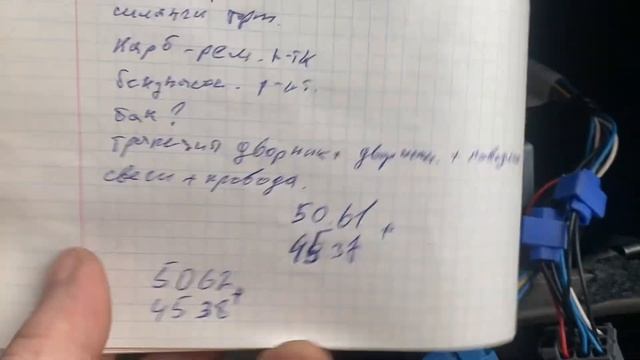 шланги торм.
Карб - рем. к-тк
бензонасос. р-кт.
бак?
Трапеция дворник + дворники. + поводки
свечи + провода.
5061
4537 +
5062
4538 +